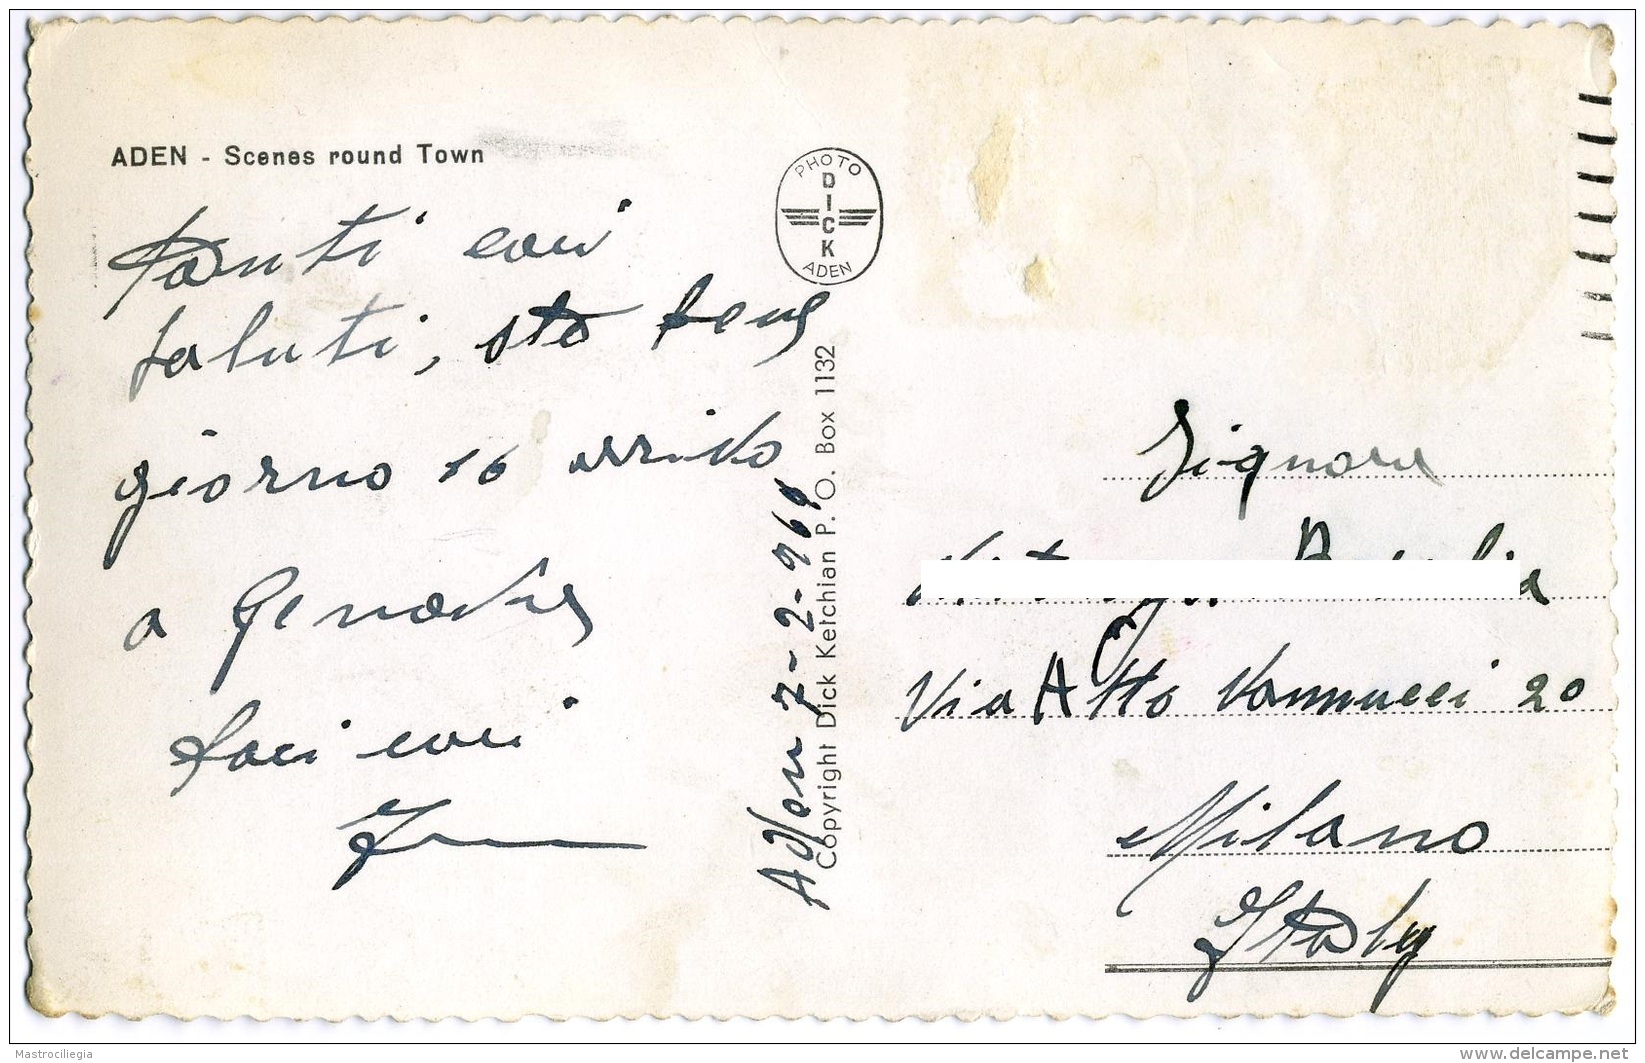 ADEN - Scenes round Town
Tanti cari
saluti, sto bene
giorno 16 arrivo
a Genova
baci cari
PHOTO
DICK
ADEN
Aden 7-2-960
Copyright Dick Ketchian P. O. Box 1132
Signora
Via Atto Vannucci 20
Milano
Italy
Mastrociliegia
www.delcampe.net